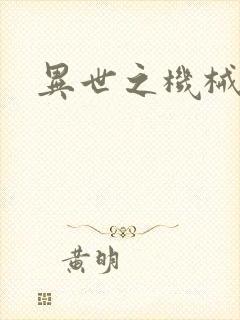 異世之機械
黃明